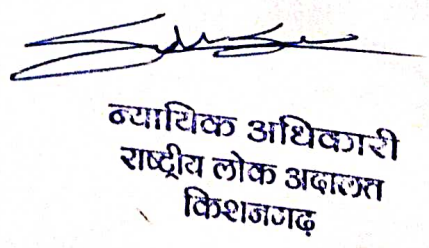 न्यायिक अधिकारी
राष्ट्रीय लोक अदालत
किशनगढ़